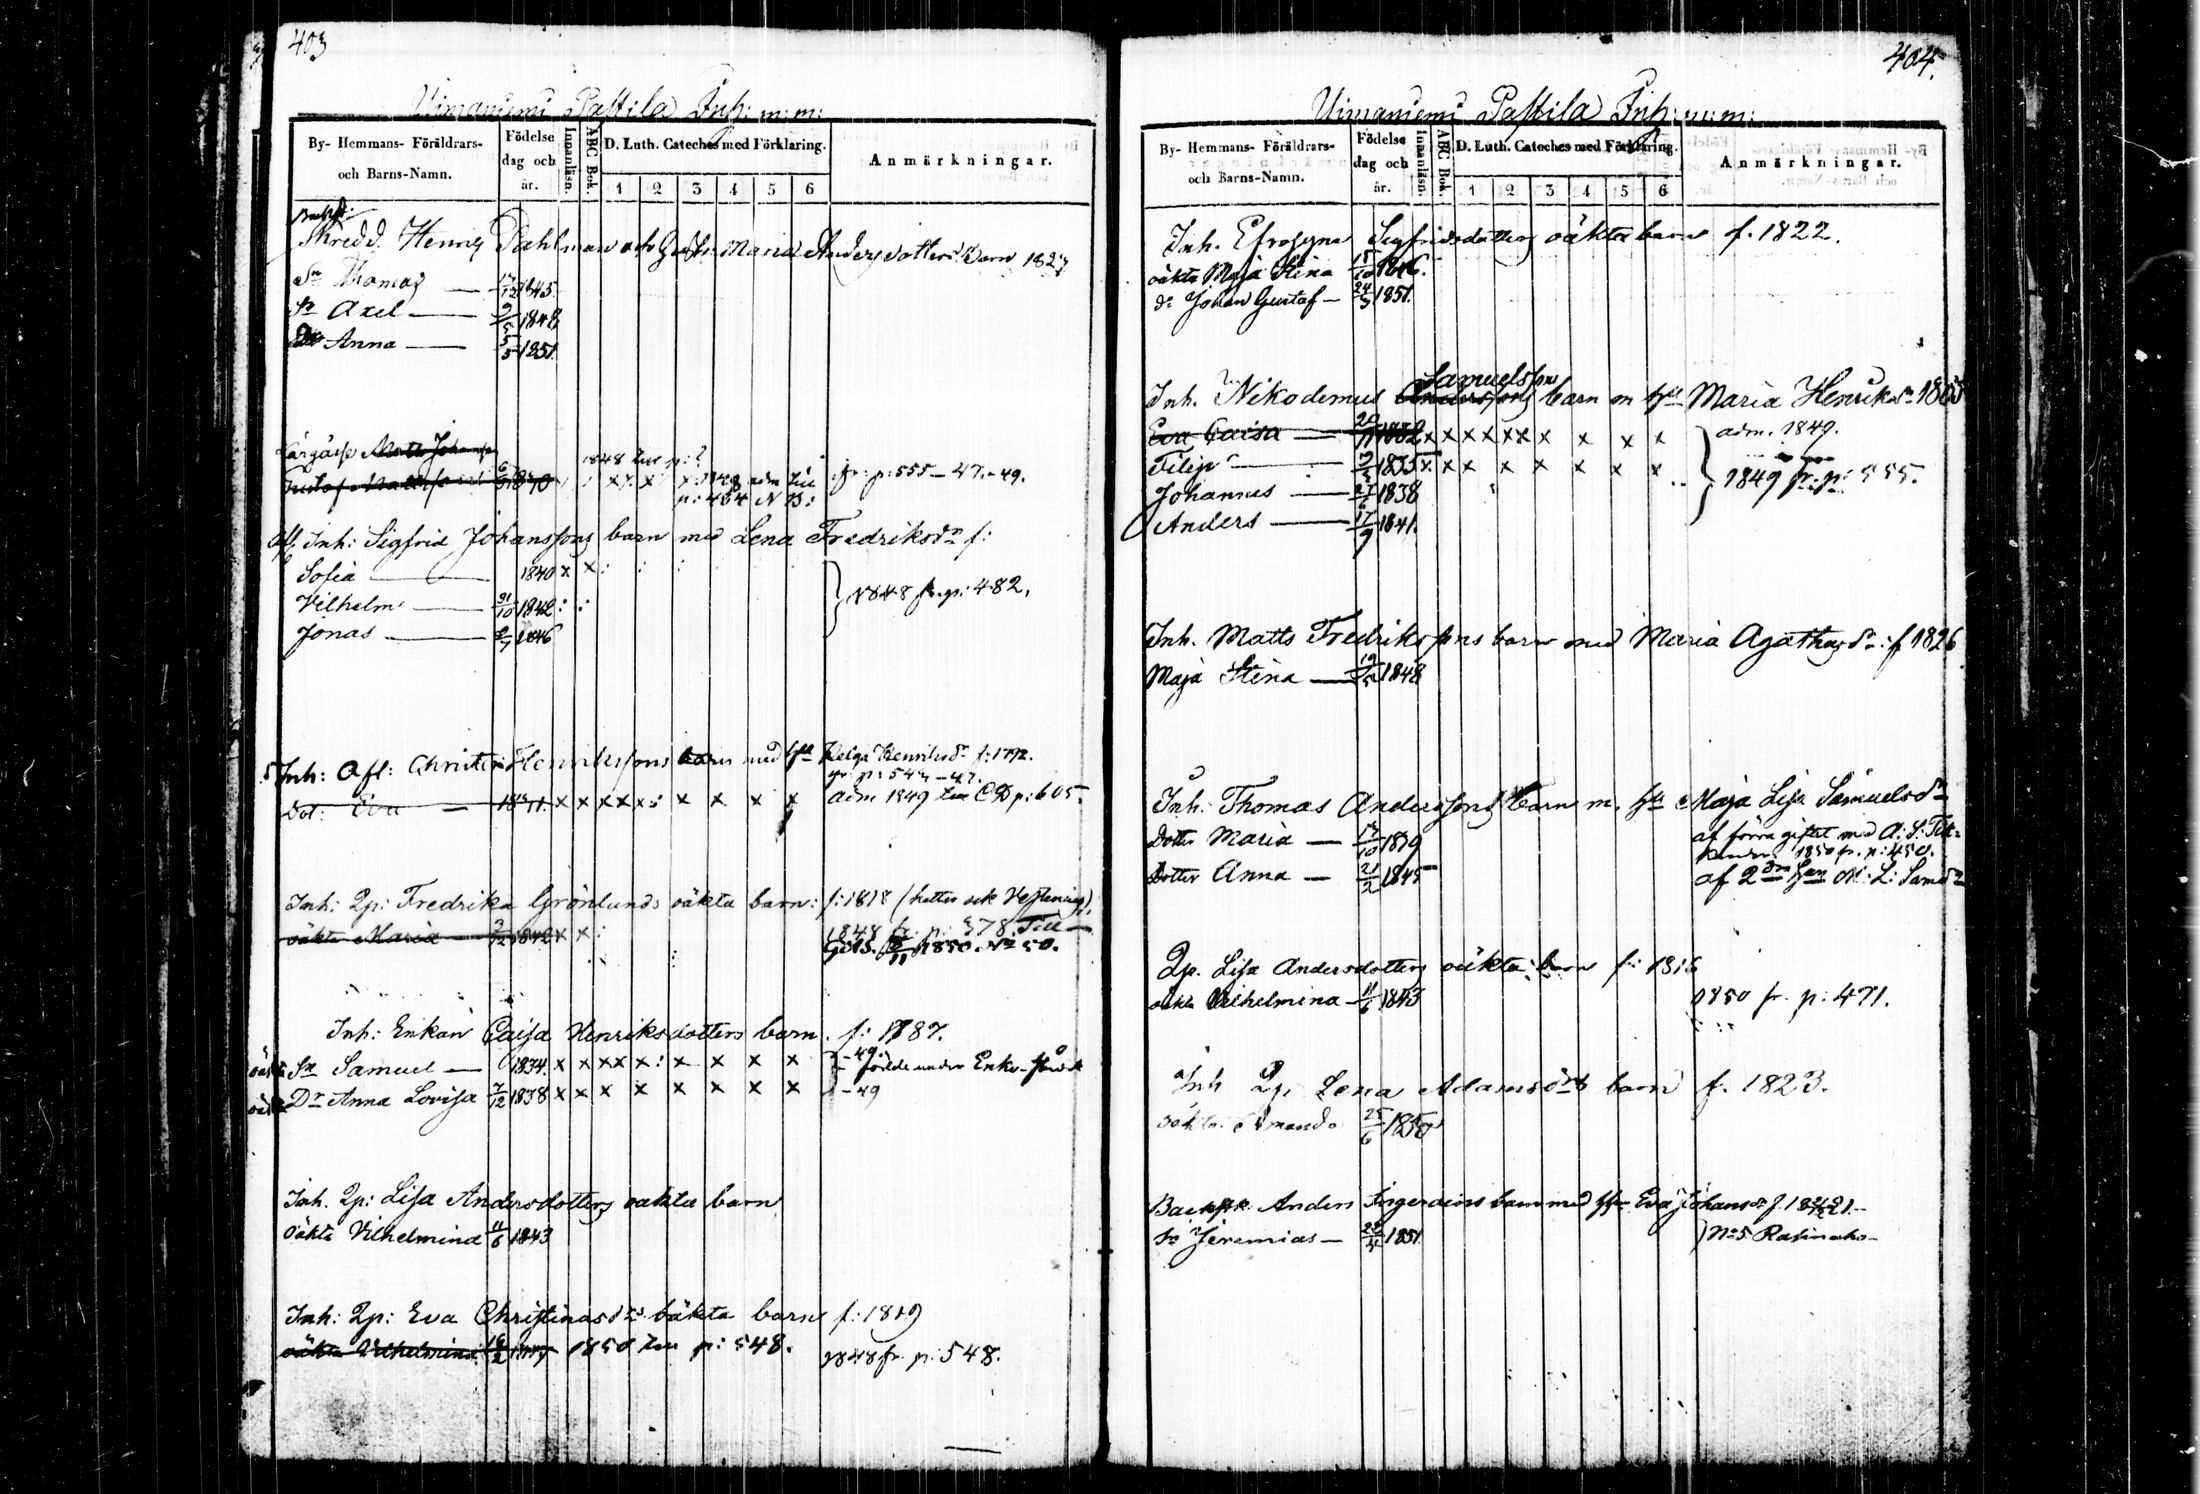 403
Uimaniemi Pastila Inh: m: m:
By- Hemmans- Föräldrars- och Barns-Namn.
Födelse dag och år.
Innanläsn.
ABC Bok.
D. Luth. Cateches med Förklaring.
1 2 3 4 5 6
Anmärkningar.
Skredd. Henrik Dahlman och Maria Andersdotters barn 1827
Sn Thomas — 17/12 1845.
Sn Axel — 9/5 1848
Anna — 5/5 1851.
Matts Johansson
1848 p:
Gustaf Mattsson 1830 x x x x 1848 adm p: 464 N 13: fr: p: 555 – 47. – 49.
Inh: Sigfrid Johanssons barn med Lena Fredriksdr f:
Sofia — 1840 x x
Vilhelm — 31/10 1842
Jonas — 1846
1848 fr. p: 482.
Inh: Afl: Christer Henrikssons barn med Hu Helga Henriksdr f: 1792.
fr p: 543 – 47.
Dot: Eva — 18 x x x x x x x x x x adm 1849 p: 605.
Inh: Qp: Fredrika Grönlunds oäkta barn: f: 1818
oäkta Maria — 2/12 1842 x x 1848 fr. p: 378. Till
11 1850. No 50.
Inh: Enkan Caisa Henriksdotters barn. f: 1787.
Sn Samuel — 1834. x x x x x x x x x – 49. födde under
Dr Anna Lovisa 7/12 1838 x x x x x x x x – 49
Inh. Qp: Lisa Andersdotters oäkta barn
Oäkta Vilhelmina 11/6 1843
Inh: Qp: Eva Christinasdrs oäkta barn f: 1819
oäkta Vilhelmina 1850 p: 548. 1848 fr. p: 548.
404.
Uimaniemi Pastila Inh: m: m:
By- Hemmans- Föräldrars- och Barns-Namn.
Födelse dag och år.
Innanläsn.
ABC Bok.
D. Luth. Cateches med Förklaring.
1 2 3 4 5 6
Anmärkningar.
Inh. Efrosyne Sigfridsdotters oäkta barn f. 1822.
oäkta Maja Stina 15/10 1846.
do Johan Gustaf — 24/3 1851.
Samuelssons
Inh. Nikodemus Anderssons barn m Hu Maria Henriksdr
Eva Caisa — x x x x x x x x x x adm. 1849.
Filip — 1835 x x x x x x x x
Johannes — 1838
Anders — 17/9 1841.
1849 fr. p: 555.
Inh. Matts Fredrikssons barn med Maria Agathasdr: f 1826
Maja Stina — 1848
Inh. Thomas Anderssons barn m. Hu Maja Lisa Samuelsdr
Dotter Maria — 10 1839 af förra giftet med A: S:
1850 fr. p: 450.
Dotter Anna — 21/2 1845 af 2
Qp. Lisa Andersdotters oäkta barn f: 1816
oäkta Vilhelmina — 11/6 1843 1850 fr. p: 471.
Inh Qp Lena Adamsdrs barn f. 1823.
oäkta Amanda 25/6 1850
Anders Ingerdins barn med Eva Johansdr f. 1821.
Sn Jeremias — 4 1851. No 5